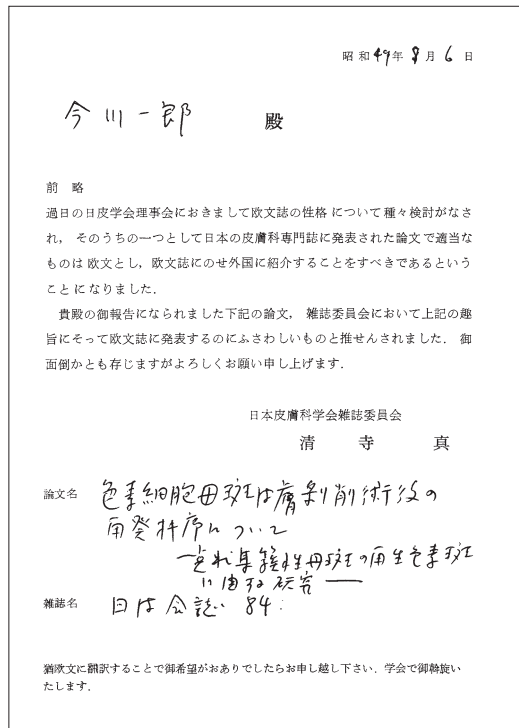 昭和49年8月6日
今川一郎 殿
前 略
過日の日皮学会理事会におきまして欧文誌の性格について種々検討がなさ
れ， そのうちの一つとして日本の皮膚科専門誌に発表された論文で適当な
ものは欧文とし，欧文誌にのせ外国に紹介することをすべきであるという
ことになりました．
貴殿の御報告になられました下記の論文， 雑誌委員会において上記の趣
旨にそって欧文誌に発表するのにふさわしいものと推せんされました． 御
面倒かとも存じますがよろしくお願い申し上げます．
日本皮膚科学会雑誌委員会
清 寺 真
論文名 色素細胞母斑皮膚剝削術後の
再発機序について
母斑の再生色素斑
に関する研究 ―
雑誌名 日皮会誌 84:
猶欧文に翻訳することで御希望がおありでしたらお申し越し下さい．学会で御斡旋い
たします．